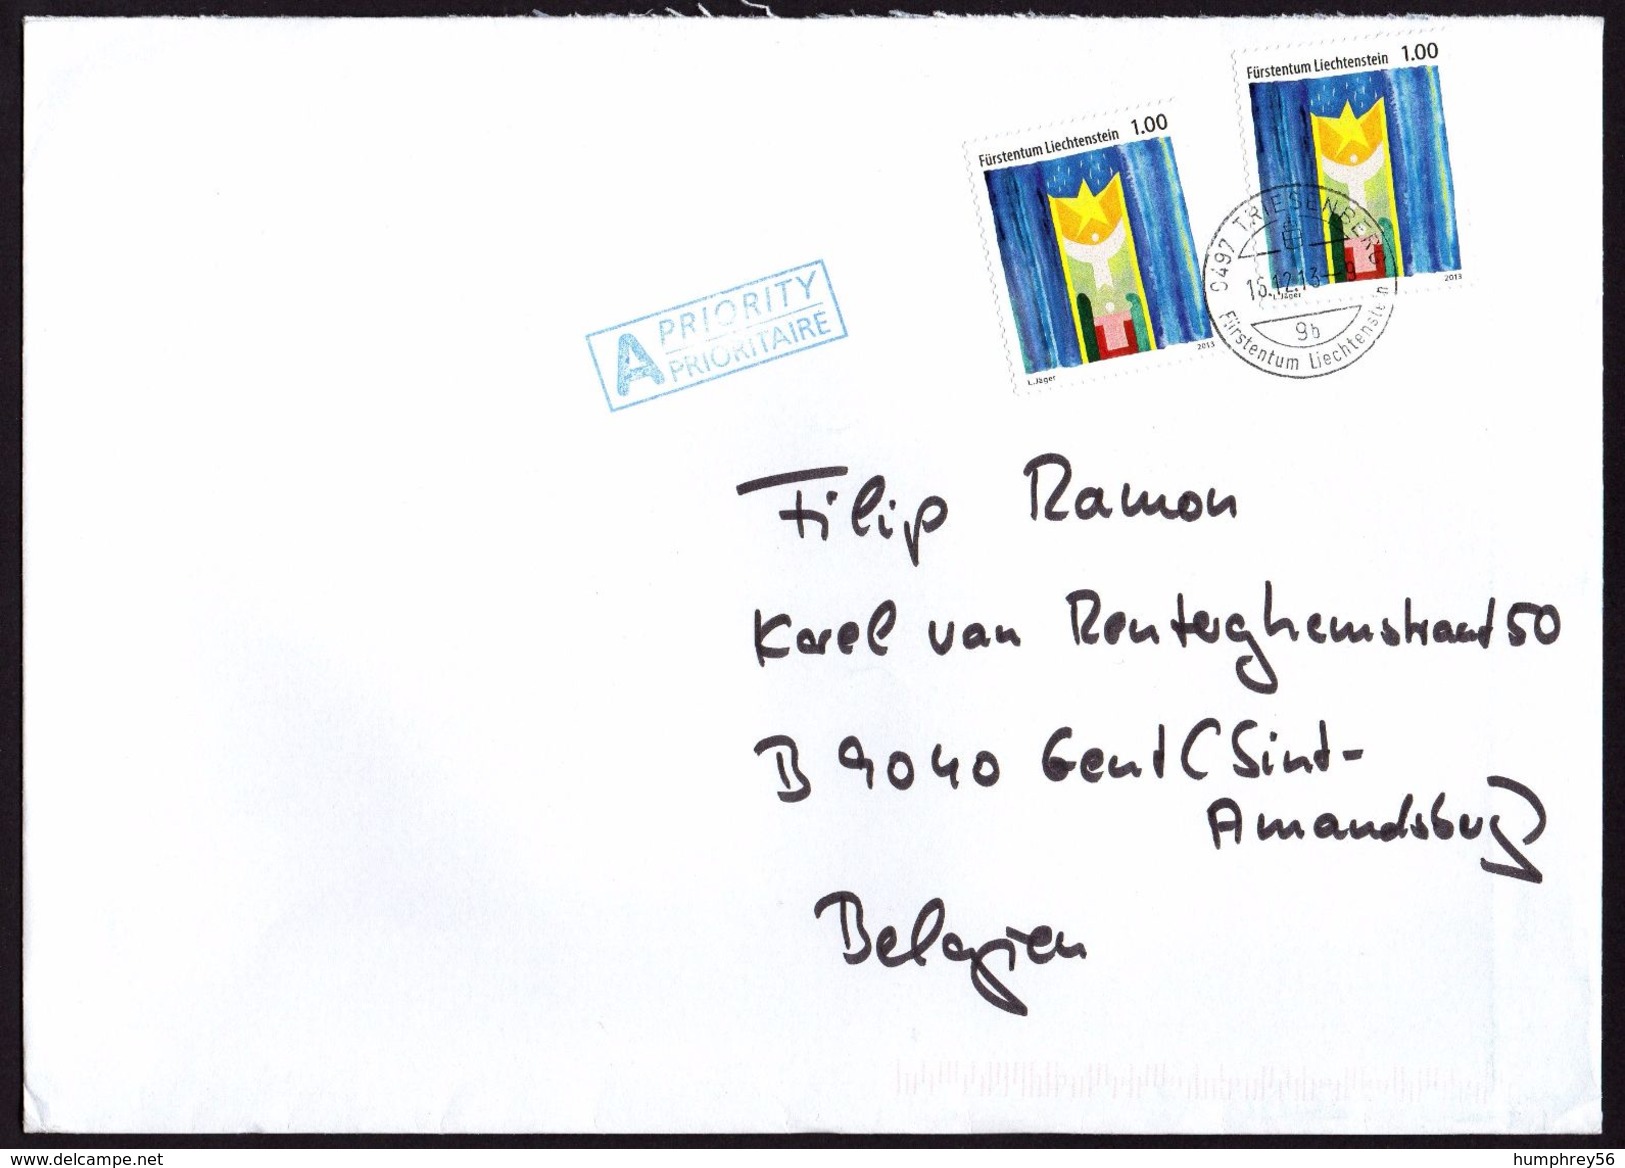 Fürstentum Liechtenstein 1.00
Fürstentum Liechtenstein 1.00
L. Jäger 2013
L. Jäger 2013
9497 TRIESENBERG
16.12.13-9
9b
Fürstentum Liechtenstein
A PRIORITY
PRIORITAIRE
Filip Ramon
Karel van Renterghemstraat 50
B 9040 Gent (Sint-
Amandsburg)
Belgien
www.delcampe.net
humphrey56